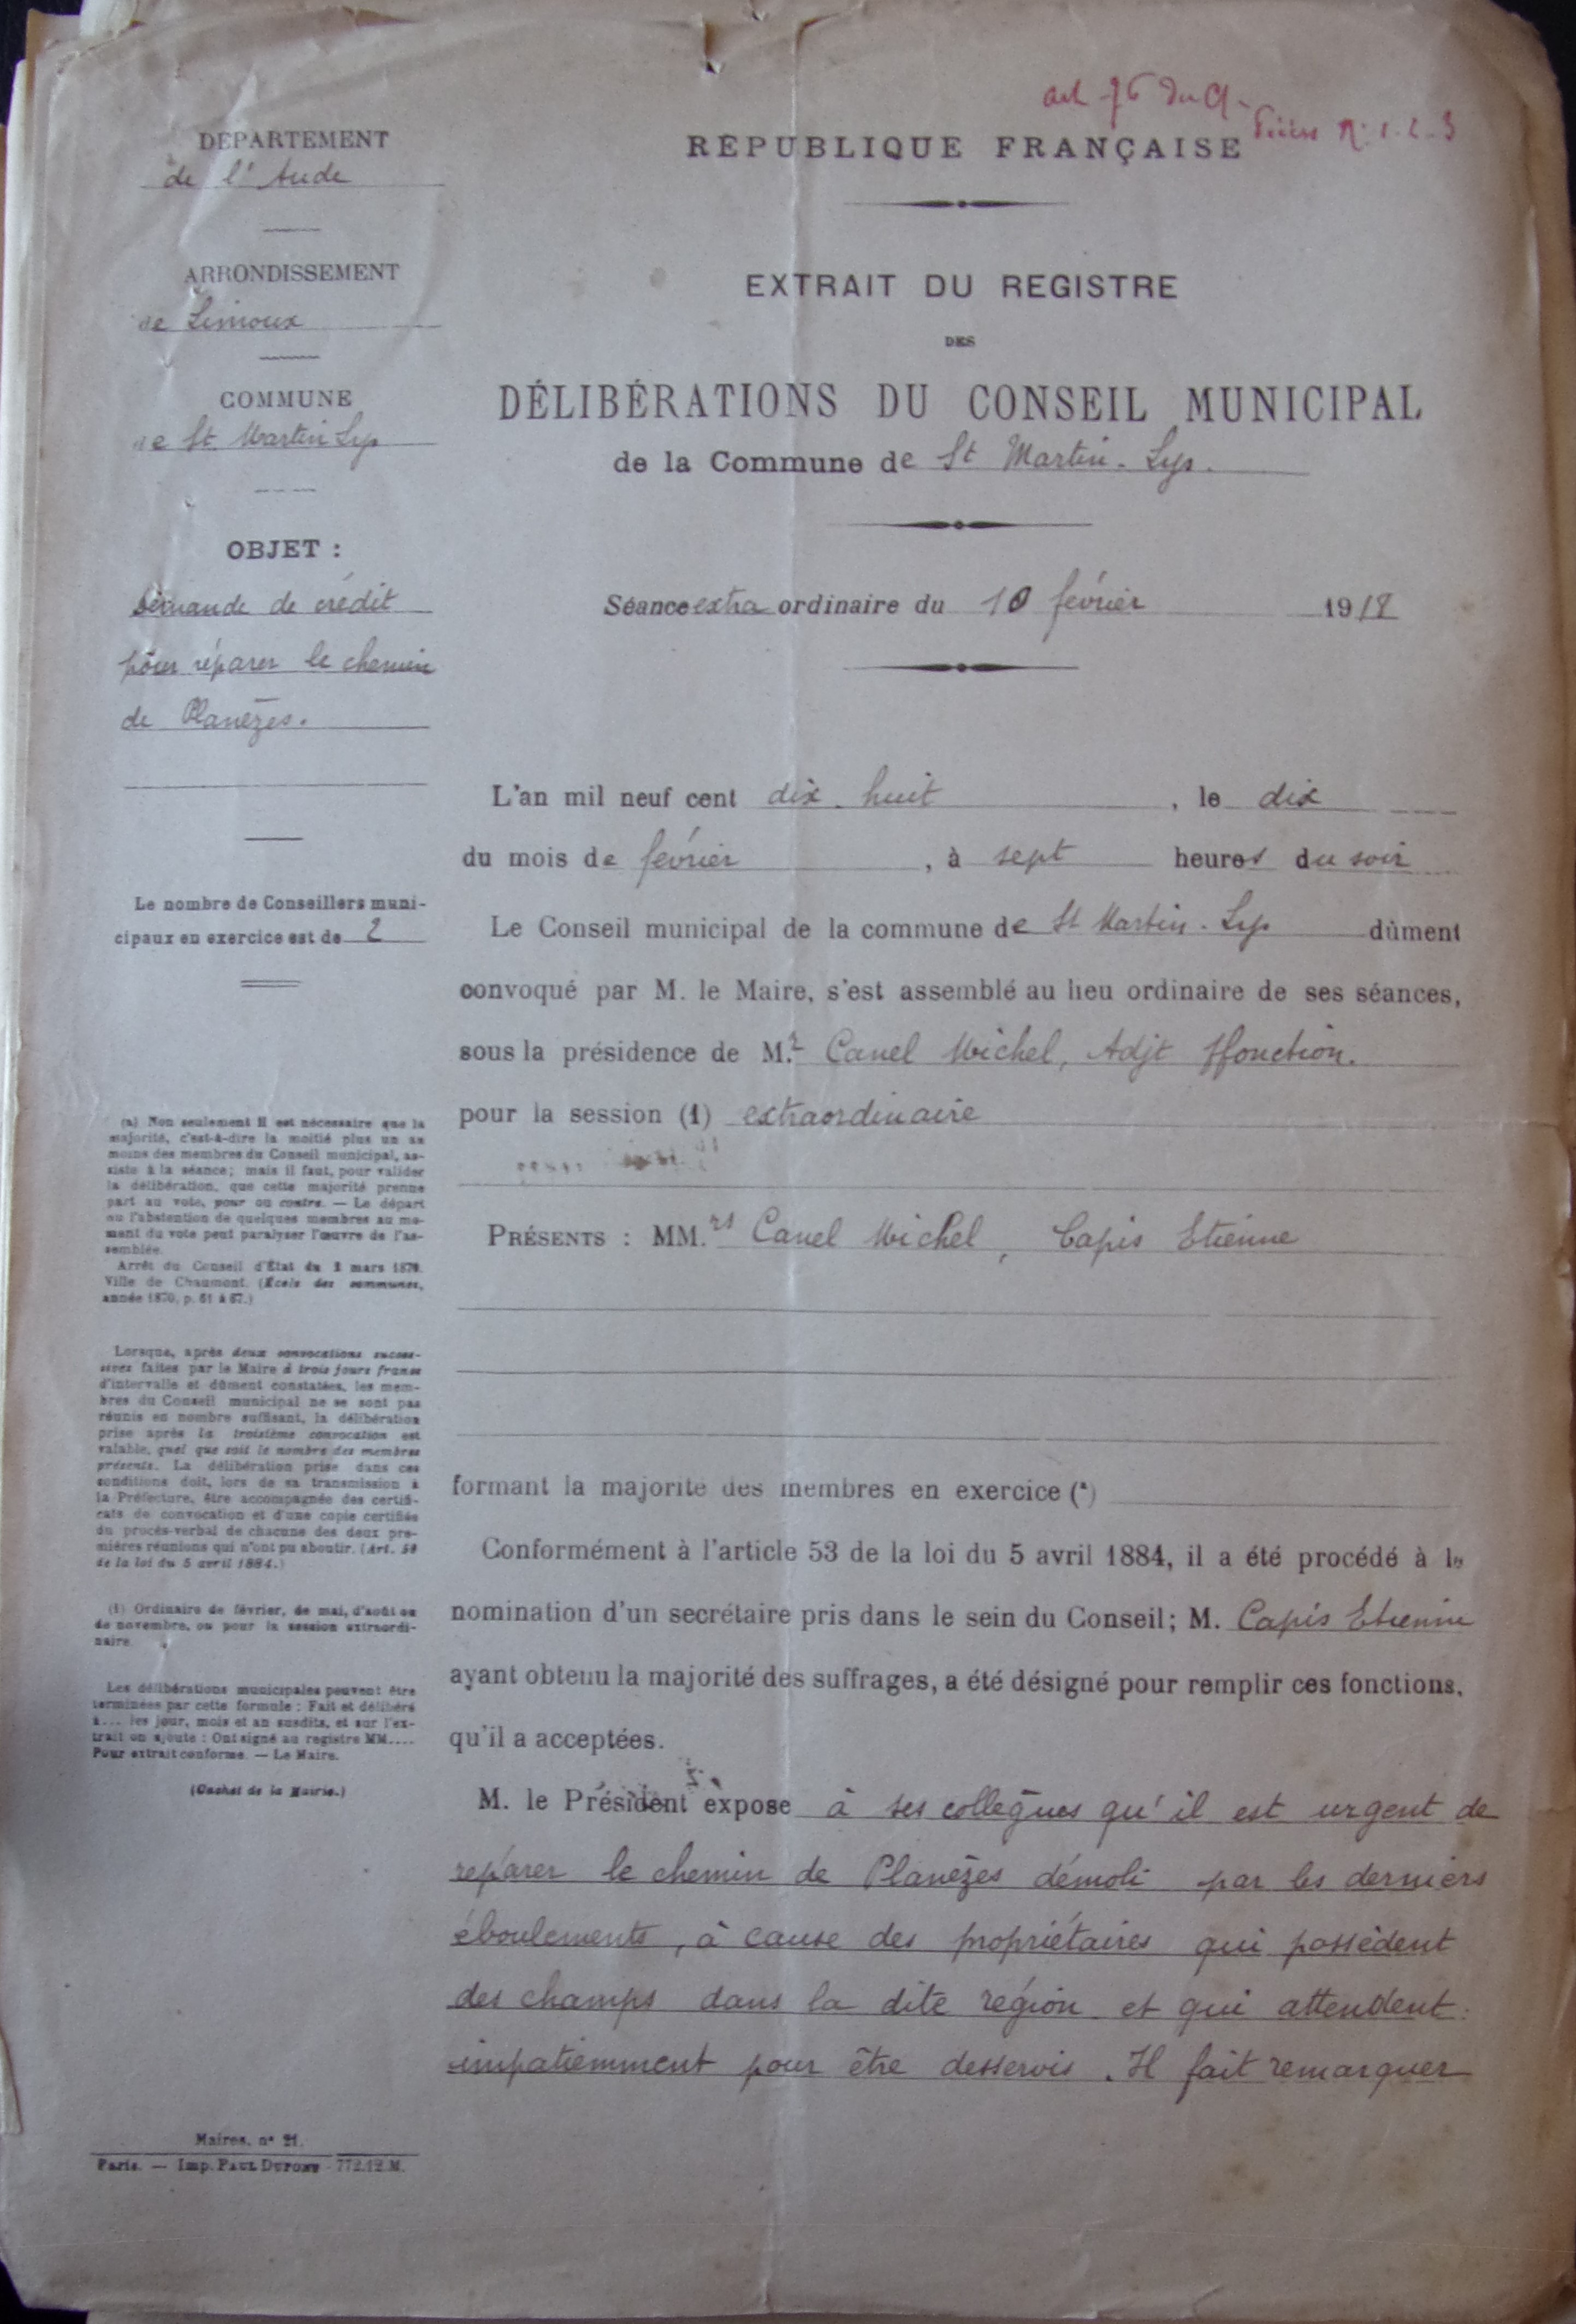 art 76 du
Pièces N° 1-2-3
DÉPARTEMENT
de l'Aude
ARRONDISSEMENT
de Limoux
COMMUNE
de St Martin Lys
OBJET :
Demande de crédit
pour réparer le chemin
de Planèzes.
Le nombre de Conseillers muni-
cipaux en exercice est de 2
(a) Non seulement il est nécessaire que la
majorité, c'est-à-dire la moitié plus un au
moins des membres du Conseil municipal, as-
siste à la séance; mais il faut, pour valider
la délibération, que cette majorité prenne
part au vote, pour ou contre. — Le départ
ou l'abstention de quelques membres au mo-
ment du vote peut paralyser l'œuvre de l'as-
semblée.
Arrêt du Conseil d'État du 2 mars 1870.
Ville de Chaumont. (École des communes,
année 1870, p. 61 à 67.)
Lorsque, après deux convocations succes-
sives faites par le Maire à trois jours francs
d'intervalle et dûment constatées, les mem-
bres du Conseil municipal ne se sont pas
réunis en nombre suffisant, la délibération
prise après la troisième convocation est
valable, quel que soit le nombre des membres
présents. La délibération prise dans ces
conditions doit, lors de sa transmission à
la Préfecture, être accompagnée des certifi-
cats de convocation et d'une copie certifiée
du procès-verbal de chacune des deux pre-
mières réunions qui n'ont pu aboutir. (Art. 50
de la loi du 5 avril 1884.)
(1) Ordinaire de février, de mai, d'août ou
de novembre, ou pour la session extraordi-
naire.
Les délibérations municipales peuvent être
terminées par cette formule : Fait et délibéré
à.... les jour, mois et an susdits, et sur l'ex-
trait on ajoute : Ont signé au registre MM....
Pour extrait conforme. — Le Maire.
(Cachet de la Mairie.)
Maires. n° 21.
Paris. — Imp. PAUL DUPONT 772.12.M.
RÉPUBLIQUE FRANÇAISE
EXTRAIT DU REGISTRE
DES
DÉLIBÉRATIONS DU CONSEIL MUNICIPAL
de la Commune de St Martin-Lys.
Séance extra ordinaire du 10 février 1918
L'an mil neuf cent dix-huit, le dix
du mois de février, à sept heures du soir
Le Conseil municipal de la commune de St Martin-Lys dûment
convoqué par M. le Maire, s'est assemblé au lieu ordinaire de ses séances,
sous la présidence de M.r Canel Michel, Adjt ffonction.
pour la session (1) extraordinaire
PRÉSENTS : MM.rs Canel Michel, Capis Etienne
formant la majorité des membres en exercice (a)
Conformément à l'article 53 de la loi du 5 avril 1884, il a été procédé à la
nomination d'un secrétaire pris dans le sein du Conseil; M. Capis Etienne
ayant obtenu la majorité des suffrages, a été désigné pour remplir ces fonctions,
qu'il a acceptées.
M. le Président expose à ses collègues qu'il est urgent de
réparer le chemin de Planèzes démoli par les derniers
éboulements, à cause des propriétaires qui possèdent
des champs dans la dite région et qui attendent
impatiemment pour être desservis. Il fait remarquer